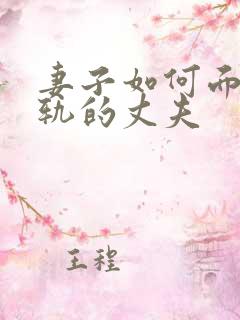 妻子如何而
轨的丈夫
王程